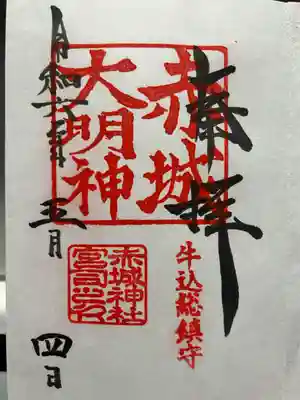 奉拝
赤城
大明神
牛込総鎮守
赤城神社
宮司之印
令和六年 五月 四日